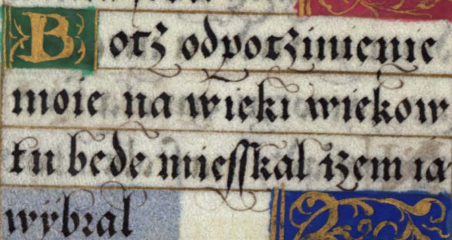 Botz odpotzinienie
moie na wieki wiekow
tu bede miesskal izem ia
wybral